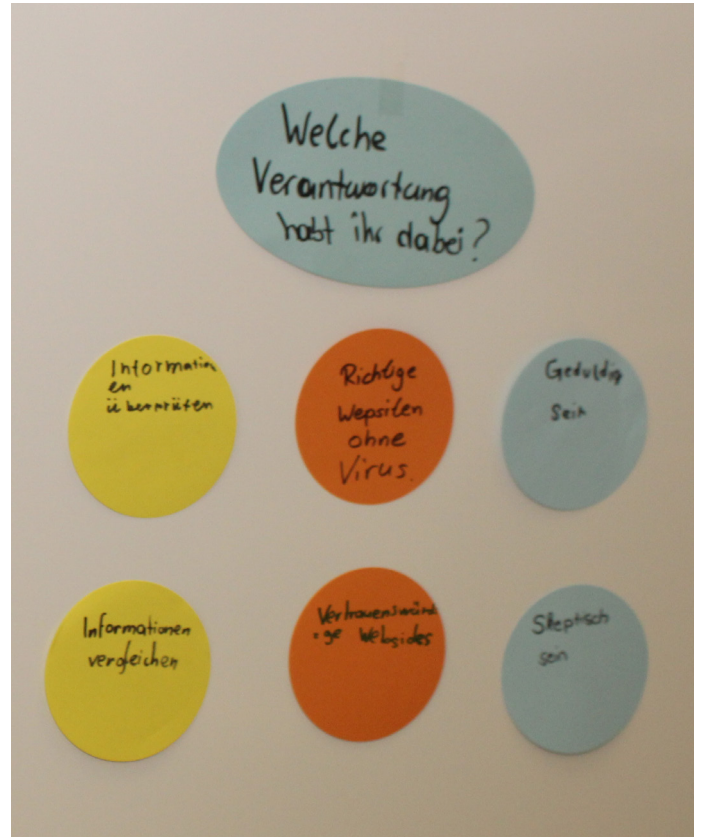 Welche
Verantwortung
habt ihr dabei?
Information
en
überprüfen
Richtige
Wepsiten
ohne
Virus.
Geduldig
sein
Informationen
vergleichen
Vertrauenswürd
ige Websides
Skeptisch
sein